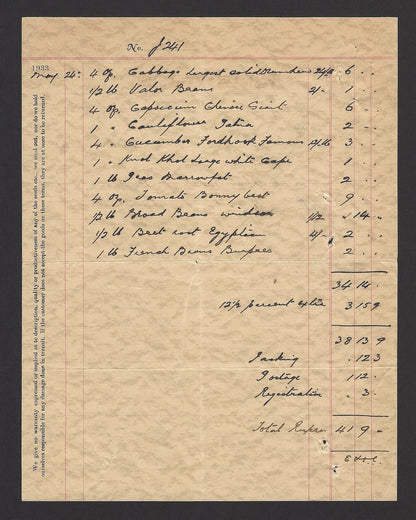 No. J 241
1933
May 24th 4 Oz. Cabbage Largest Solid Drumhead 24/- 6 . .
1/2 lb Valor Beans 2/- 1 . .
4 Oz. Capsicum Chinese Giant 6 . .
1 " Cauliflower Patna 2 . .
4 " Cucumber Fordhook Famous 12/- lb 3 . .
1 " Knol Khol Large white Cape 1 . .
1 lb Peas Marrowfat 2 . .
4 oz. Tomato Bonny best 9 . .
1/2 lb Broad Beans windsor 1/2 . 14 .
1/2 lb Beet root Egyptian 4/- 2 . .
1 lb French Beans Burpees 2 . .
34 14 .
12 1/2 percent extra 3 15 9
38 13 9
Packing . 12 3
Postage 1 12 .
Registration . 3 .
Total Rupees 41 9 .
E & O. E.
We give no warranty expressed or implied as to description, quality or productiveness of any of the seeds etc., we send out, nor do we hold
ourselves responsible for any damage done in transit. If the customer does not accept the goods on these terms, they are at once to be returned.